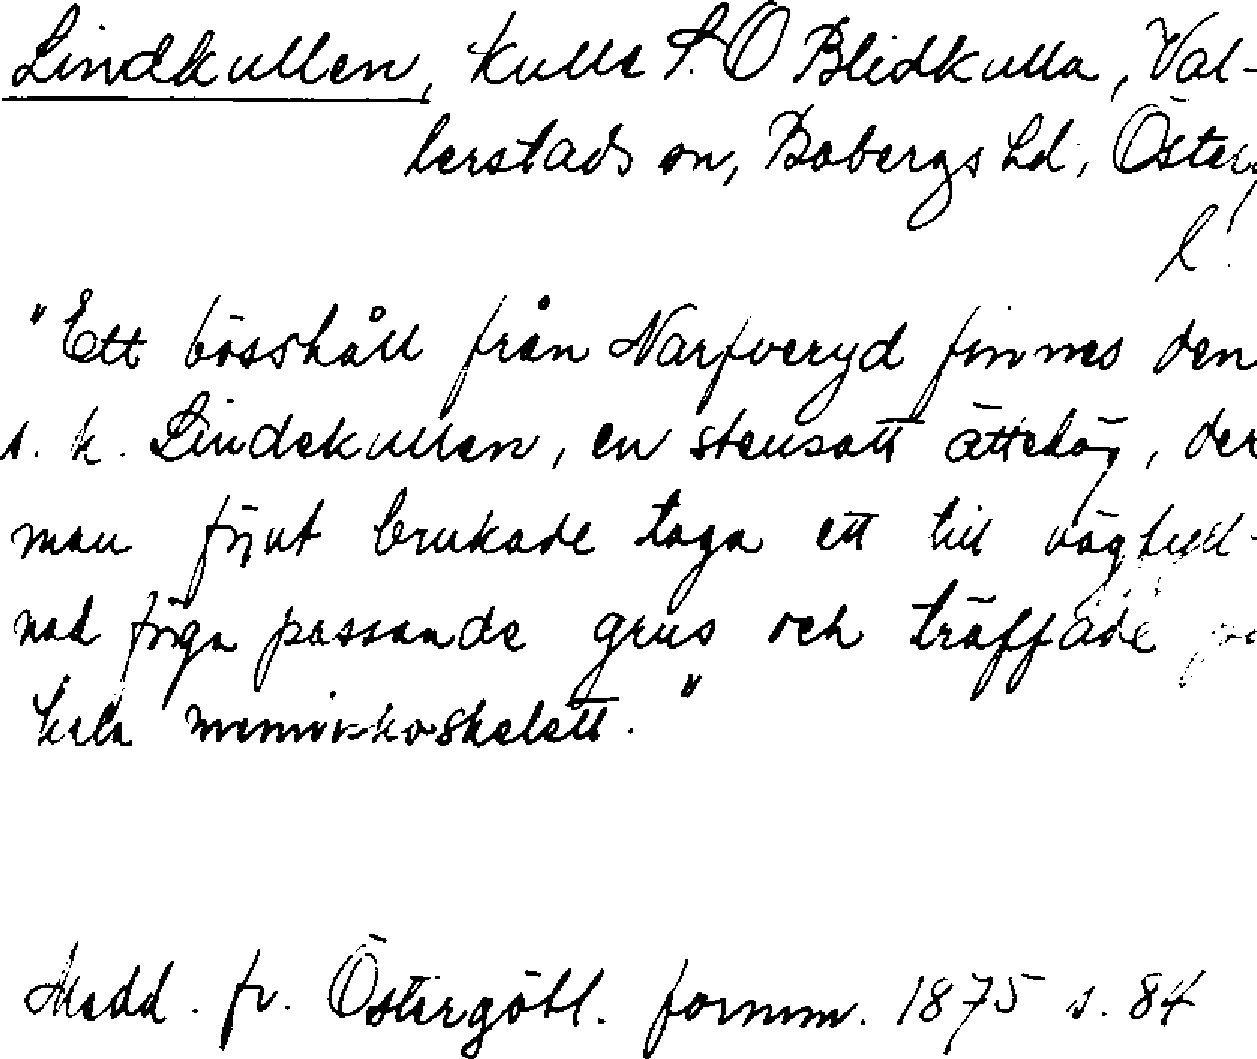 Lindkullen, kulle S.O Blidkulla, Väl-
berstads sn, Bobergs hd, Österg.
l.
"Ett bösshåll från Narfveryd finnes den
s. k. Lindekullen, en stensatt ättehög, der
man förut brukade taga ett till vägfyll-
nad föga passande grus och träffade på
hela menniskoskelett."
Medd. fr. Östergötl. fornm. 1875 s. 84